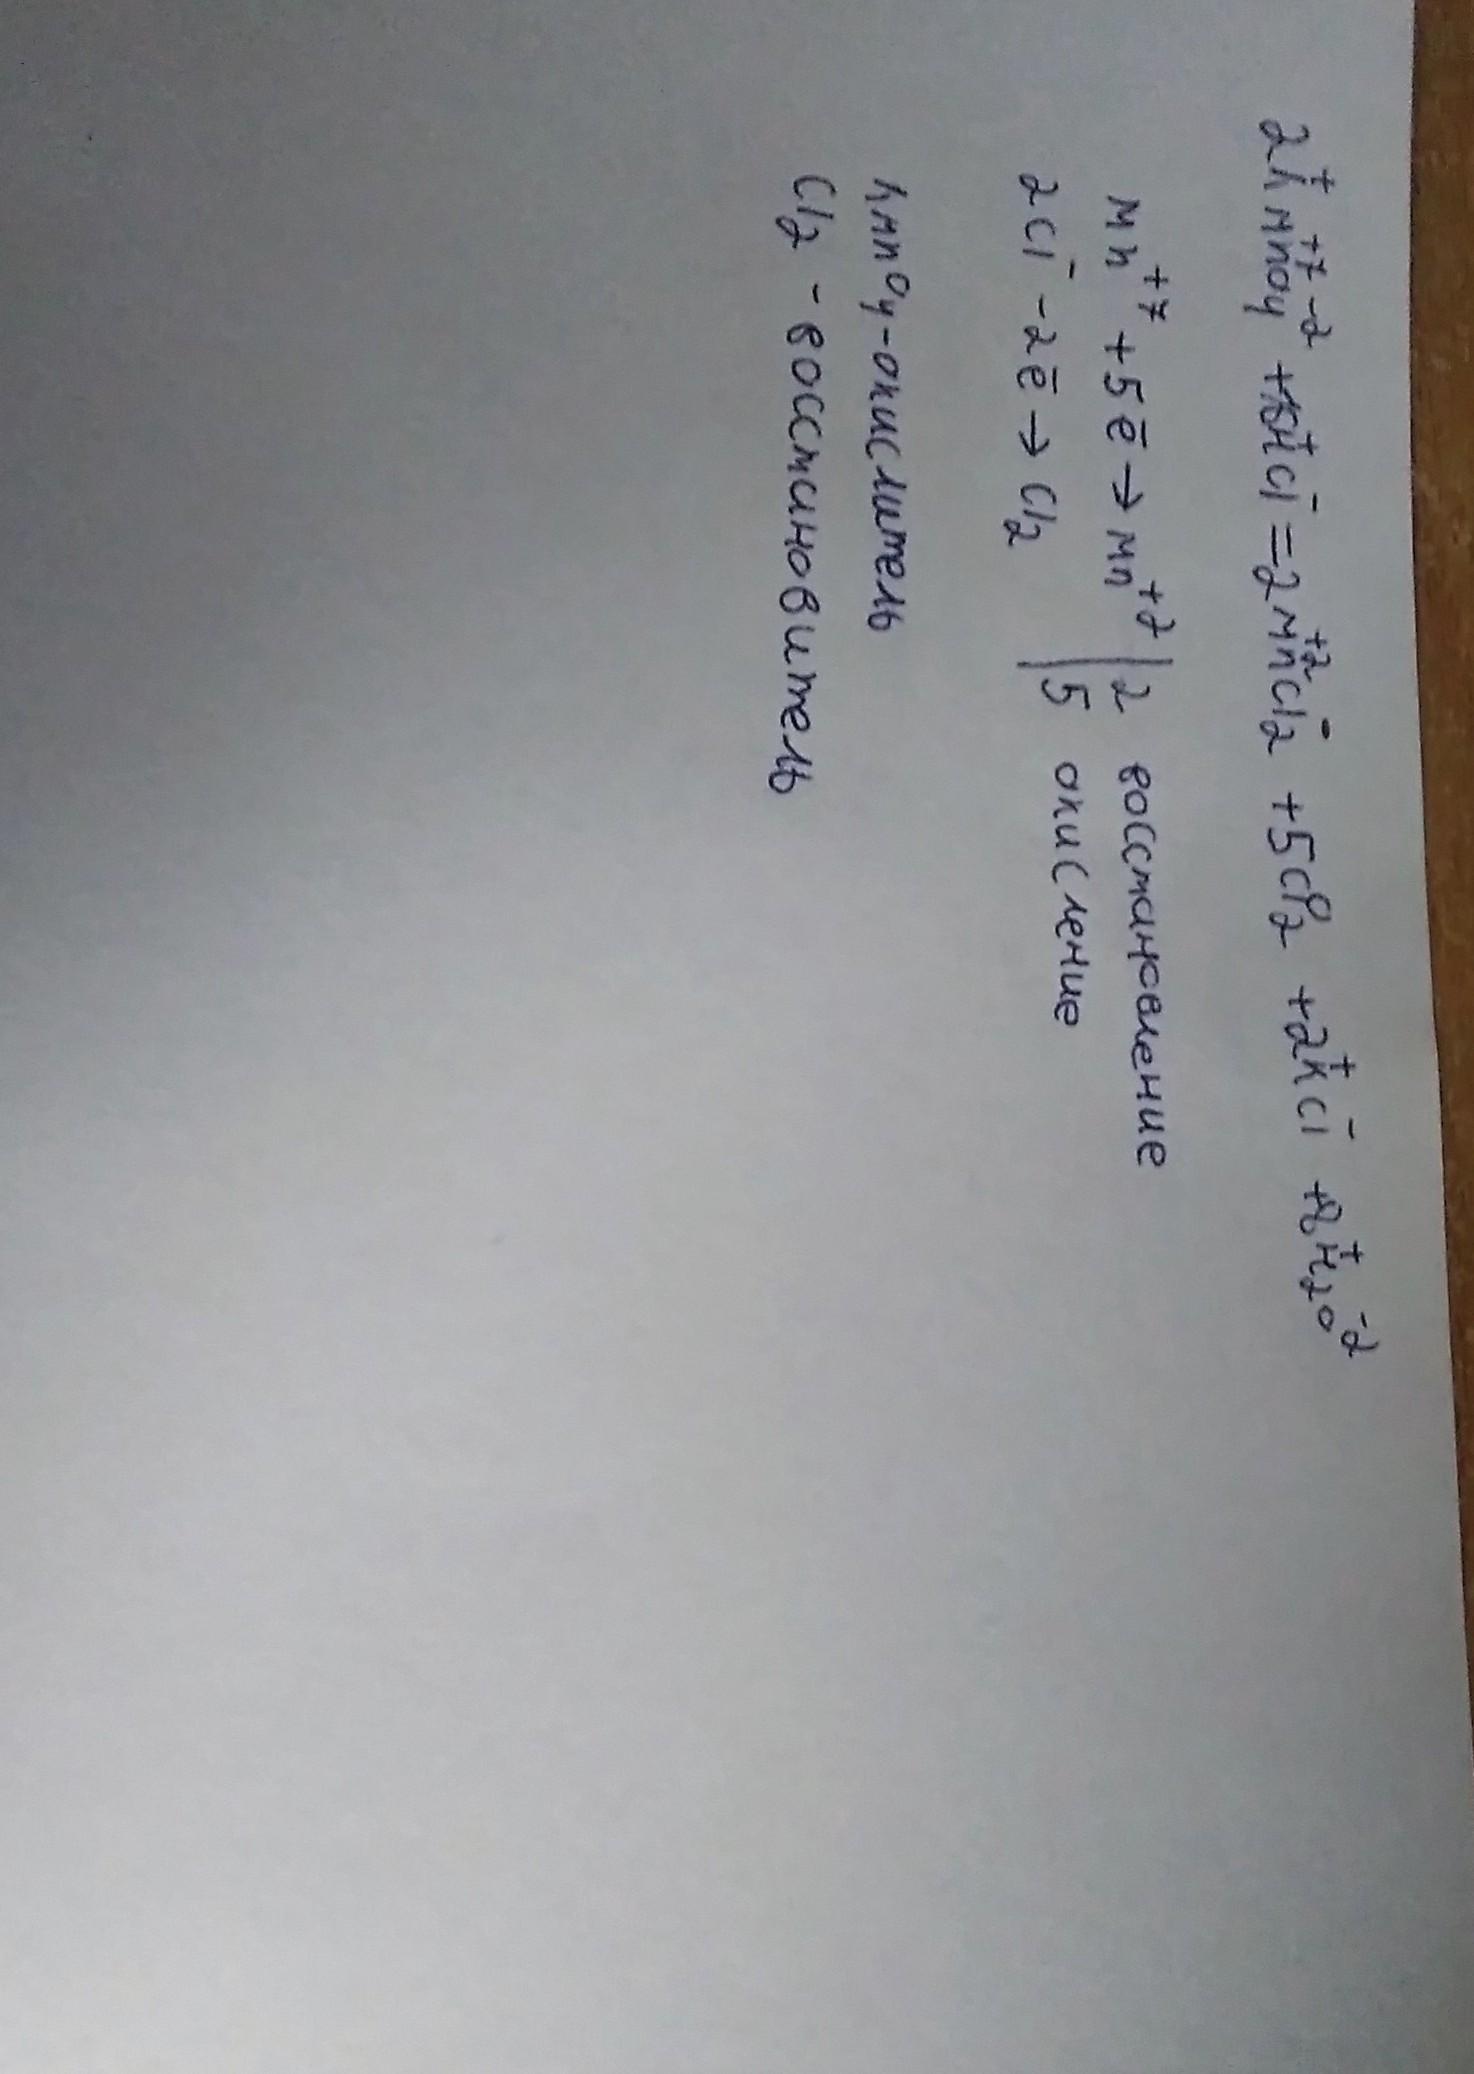 2K⁺Mn⁺⁷O₄⁻² + 16H⁺Cl⁻ = 2Mn⁺²Cl₂⁻ + 5Cl₂⁰ + 2K⁺Cl⁻ + 8H₂⁺O⁻²
Mn⁺⁷ + 5ē → Mn⁺² | 2 восстановление
2Cl⁻ - 2ē → Cl₂ | 5 окисление
KMnO₄ - окислитель
Cl₂ - восстановитель